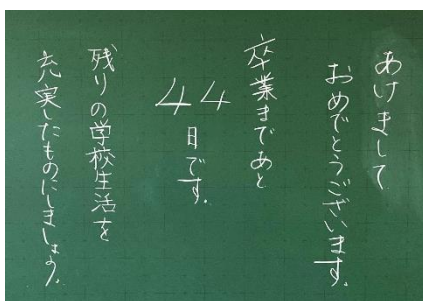 あけまして
おめでとうございます。
卒業まであと
44
日です。
残りの学校生活を
充実したものにしましょう。